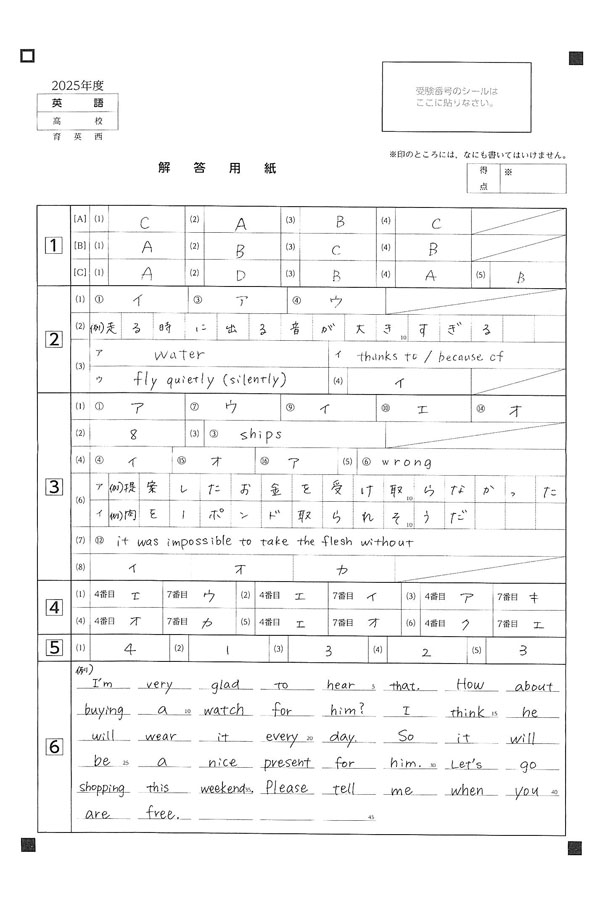 2025年度
英 語
高 校
育 英 西
受験番号のシールは
ここに貼りなさい。
解 答 用 紙
※印のところには、なにも書いてはいけません。
得点 ※
1
[A] (1) C (2) A (3) B (4) C
[B] (1) A (2) B (3) C (4) B
[C] (1) A (2) D (3) B (4) A (5) B
2
(1) ① イ ③ ア ④ ウ
(2) (例)走る時に出る音が大き10すぎる
(3) ア water イ thanks to / because of
ウ fly quietly (silently) (4) イ
3
(1) ① ア ⑦ ウ ⑨ イ ⑩ エ ⑭ オ
(2) 8 (3) ③ ships
(4) ④ イ ⑬ オ ⑯ ア (5) ⑥ wrong
(6) ア (例)提案したお金を受け取10らなかった
イ (例)肉を1ポンド取られ10そうだ
(7) ⑫ it was impossible to take the flesh without
(8) イ オ カ
4
(1) 4番目 エ 7番目 ウ (2) 4番目 エ 7番目 イ (3) 4番目 ア 7番目 キ
(4) 4番目 オ 7番目 カ (5) 4番目 エ 7番目 オ (6) 4番目 ク 7番目 エ
5
(1) 4 (2) 1 (3) 3 (4) 2 (5) 3
6
(例)
I'm very glad to hear 5 that. How about
buying a 10 watch for him? I think 15 he
will wear it every 20 day. So it will
be 25 a nice present for him. 30 Let's go
shopping this weekend 35, Please tell me when you 40
are free. 45